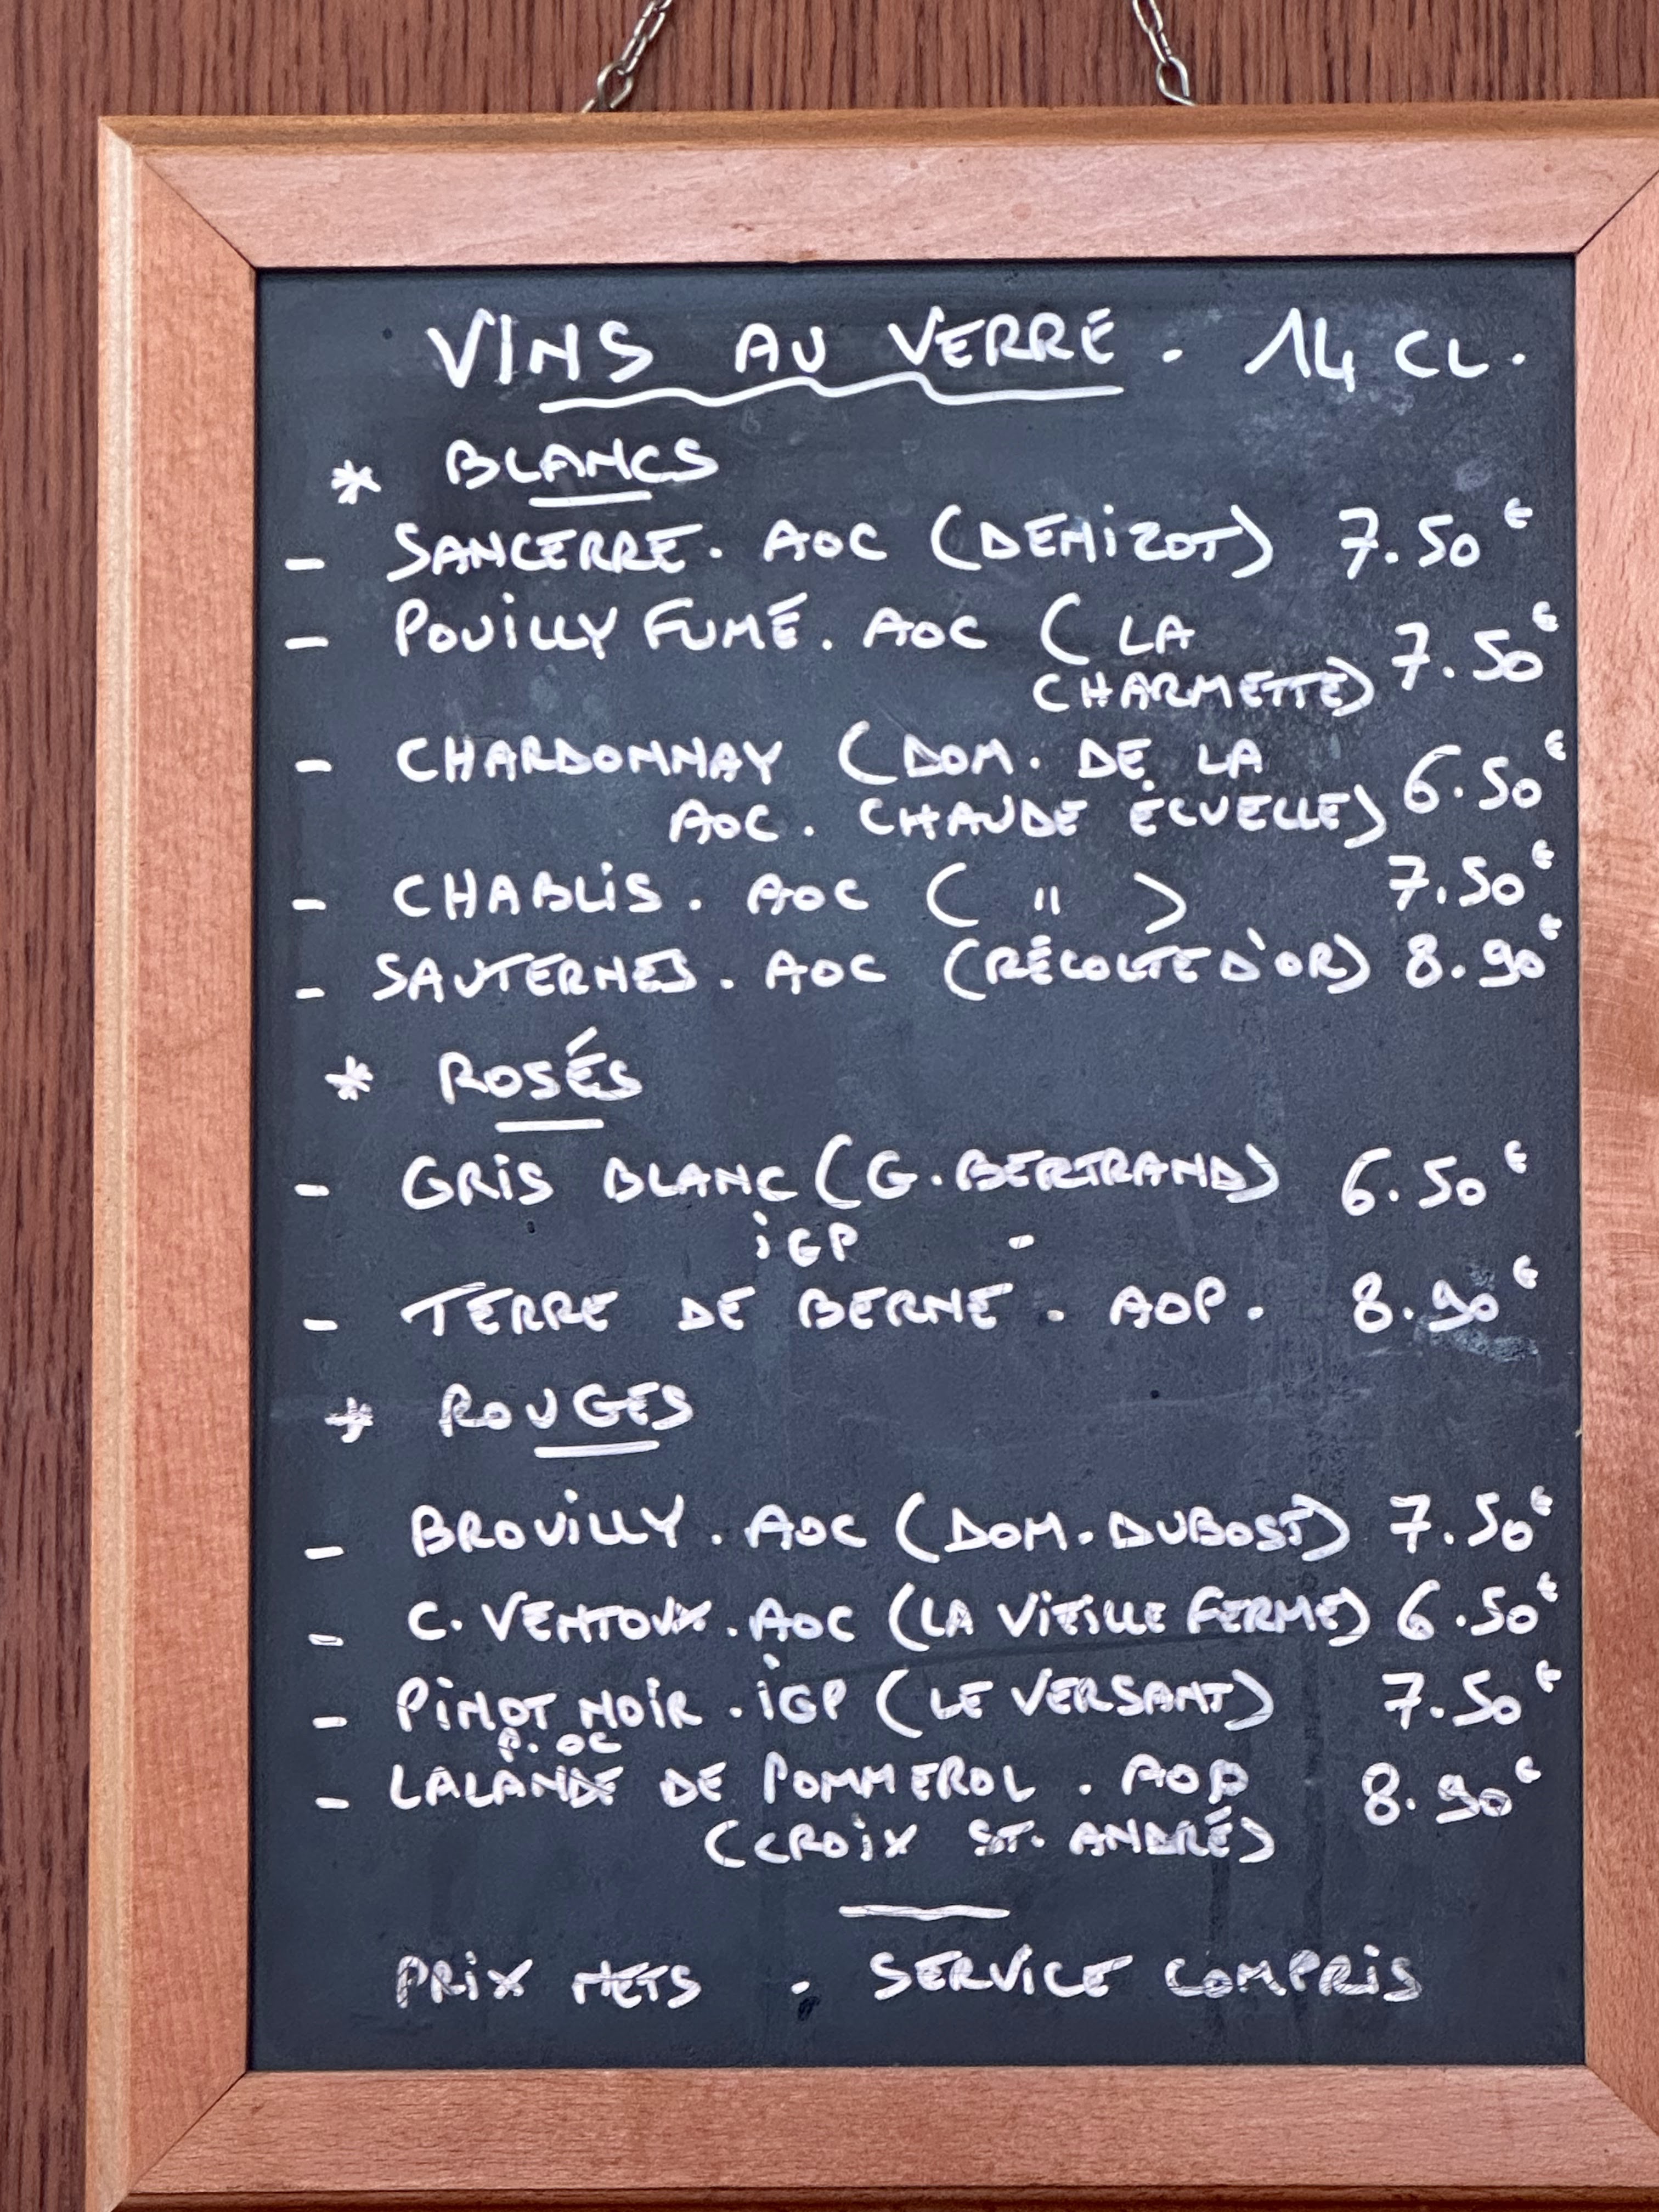 VINS AU VERRE. 14 CL.
* BLANCS
- SANCERRE. AOC (DEMIZOT) 7.50€
- POUILLY FUMÉ. AOC (LA
CHARMETTE) 7.50€
- CHARDONNAY (DOM. DE LA
AOC. CHAUDE ÉCUELLE) 6.50€
- CHABLIS. AOC ( " ) 7.50€
- SAUTERNES. AOC (RÉCOLTE D'OR) 8.90€
* ROSÉS
- GRIS BLANC (G. BERTRAND) 6.50€
IGP -
- TERRE DE BERNE. AOP. 8.90€
* ROUGES
- BROUILLY. AOC (DOM. DUBOST) 7.50€
- C. VENTOUX. AOC (LA VIEILLE FERME) 6.50€
- PINOT NOIR. IGP (LE VERSANT) 7.50€
P. OC
- LALANDE DE POMMEROL. AOP 8.90€
(CROIX ST. ANDRÉ)
PRIX NETS . SERVICE COMPRIS